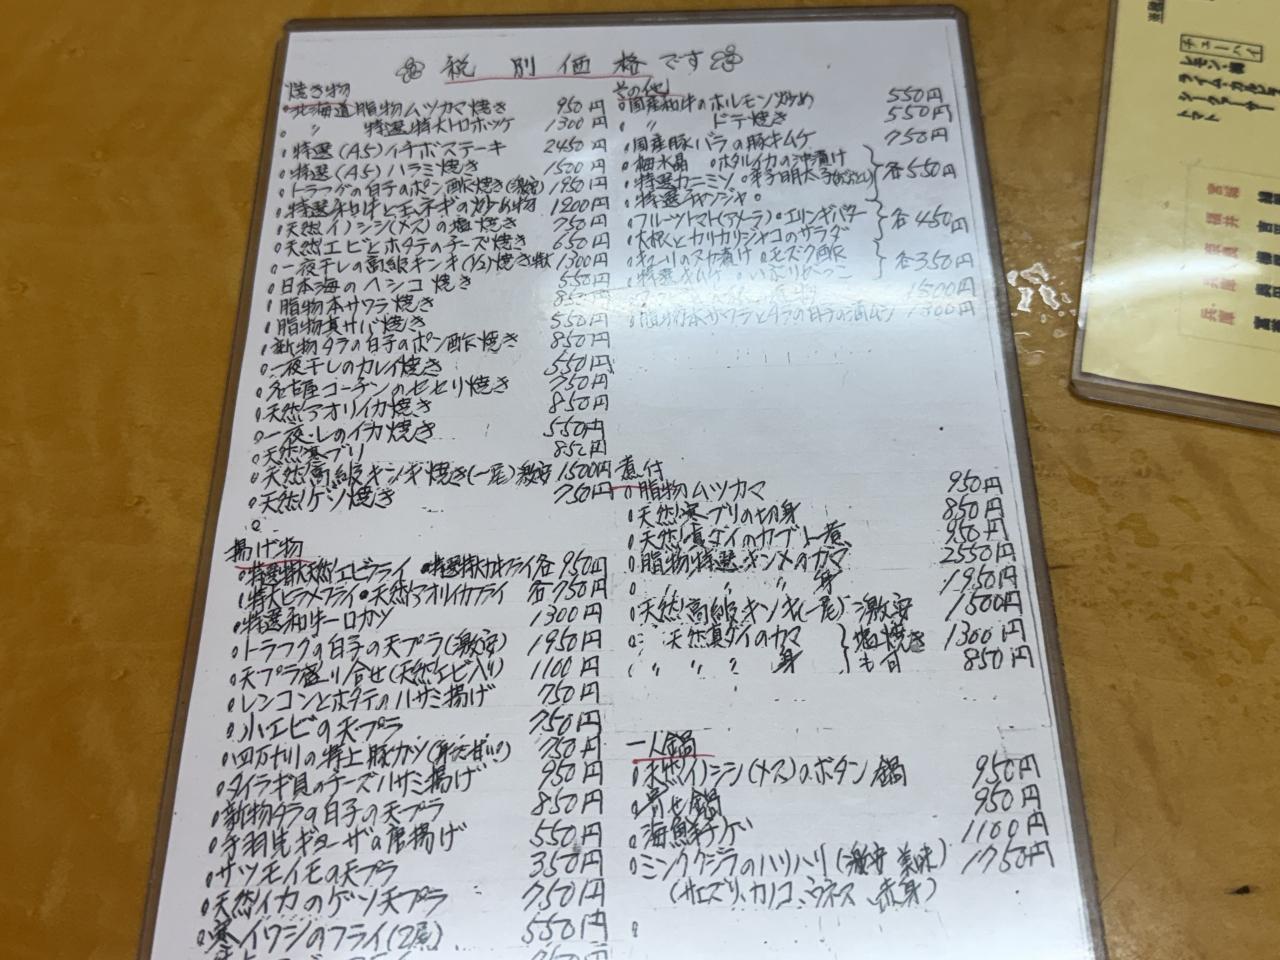 税別価格です
焼き物
北海道脂物ムツカマ焼き 950円
〃 特選特大トロホッケ 1300円
特選(A5)イチボステーキ 2450円
特選(A5)ハラミ焼き 1500円
トラフグの白子のポン酢焼き(激安) 1950円
特選和牛と玉ネギの炒め物 1200円
天然イノシシ(メス)の塩焼き 750円
天然エビとホタテのチーズ焼き 650円
一夜干しの高級キンキ(1/2)焼き 1300円
日本海のヘシコ焼き 550円
脂物本サワラ焼き 850円
脂物真サバ焼き 550円
新物タラの白子のポン酢焼き 850円
一夜干しのカレイ焼き 550円
名古屋コーチンのセセリ焼き 750円
天然アオリイカ焼き 850円
一夜干しのイカ焼き 550円
天然寒ブリ 850円
天然高級キンキ焼き(一尾)激安 1500円
天然ゲソ焼き 750円
揚げ物
特選特大天然エビフライ・特選特大カキフライ 各950円
特大ヒラメフライ・天然アオリイカフライ 各750円
特選和牛一口カツ 1300円
トラフグの白子の天プラ(激安) 1950円
天プラ盛り合せ(天然エビ入り) 1100円
レンコンとホタテのハサミ揚げ 750円
小エビの天プラ 750円
四万十川の特上豚カツ 750円
タイラギ貝のチーズハサミ揚げ 950円
新物タラの白子の天プラ 850円
手羽先ギョーザの唐揚げ 550円
サツマイモの天プラ 350円
天然イカのゲソ天プラ 750円
寒イワシのフライ(2尾) 550円
その他
国産和牛のホルモン炒め 550円
〃 ドテ焼き 550円
国産豚バラの豚キムチ 750円
梅水晶・ホタルイカの沖漬け
特選カニミソ・辛子明太子 各550円
特選チャンジャ・
フルーツトマト(アメーラ)・エリンギバター
大根とカリカリジャコのサラダ 各450円
キューリのヌカ漬け・モズク酢
特選キムチ 各350円
1500円
脂物本サワラとタラの白子の酒ムシ 1300円
煮付
脂物ムツカマ 950円
天然寒ブリの切身 850円
天然真ダイのカブト煮 950円
脂物特選キンメのカマ 2550円
〃 〃 身 1950円
天然高級キンキ(一尾)激安 1500円
天然真ダイのカマ 塩焼き 1300円
〃 〃 身 も可 850円
一人鍋
天然イノシシ(メス)のボタン鍋 950円
寄せ鍋 950円
海鮮チゲ 1100円
ミンククジラのハリハリ(激安 美味) 1750円
(サエズリ、カノコ、ウネス、赤身)
チューハイ
ライム・カルピス
シークァーサー
トマト
宮城
福井
奈良
兵庫
兵庫